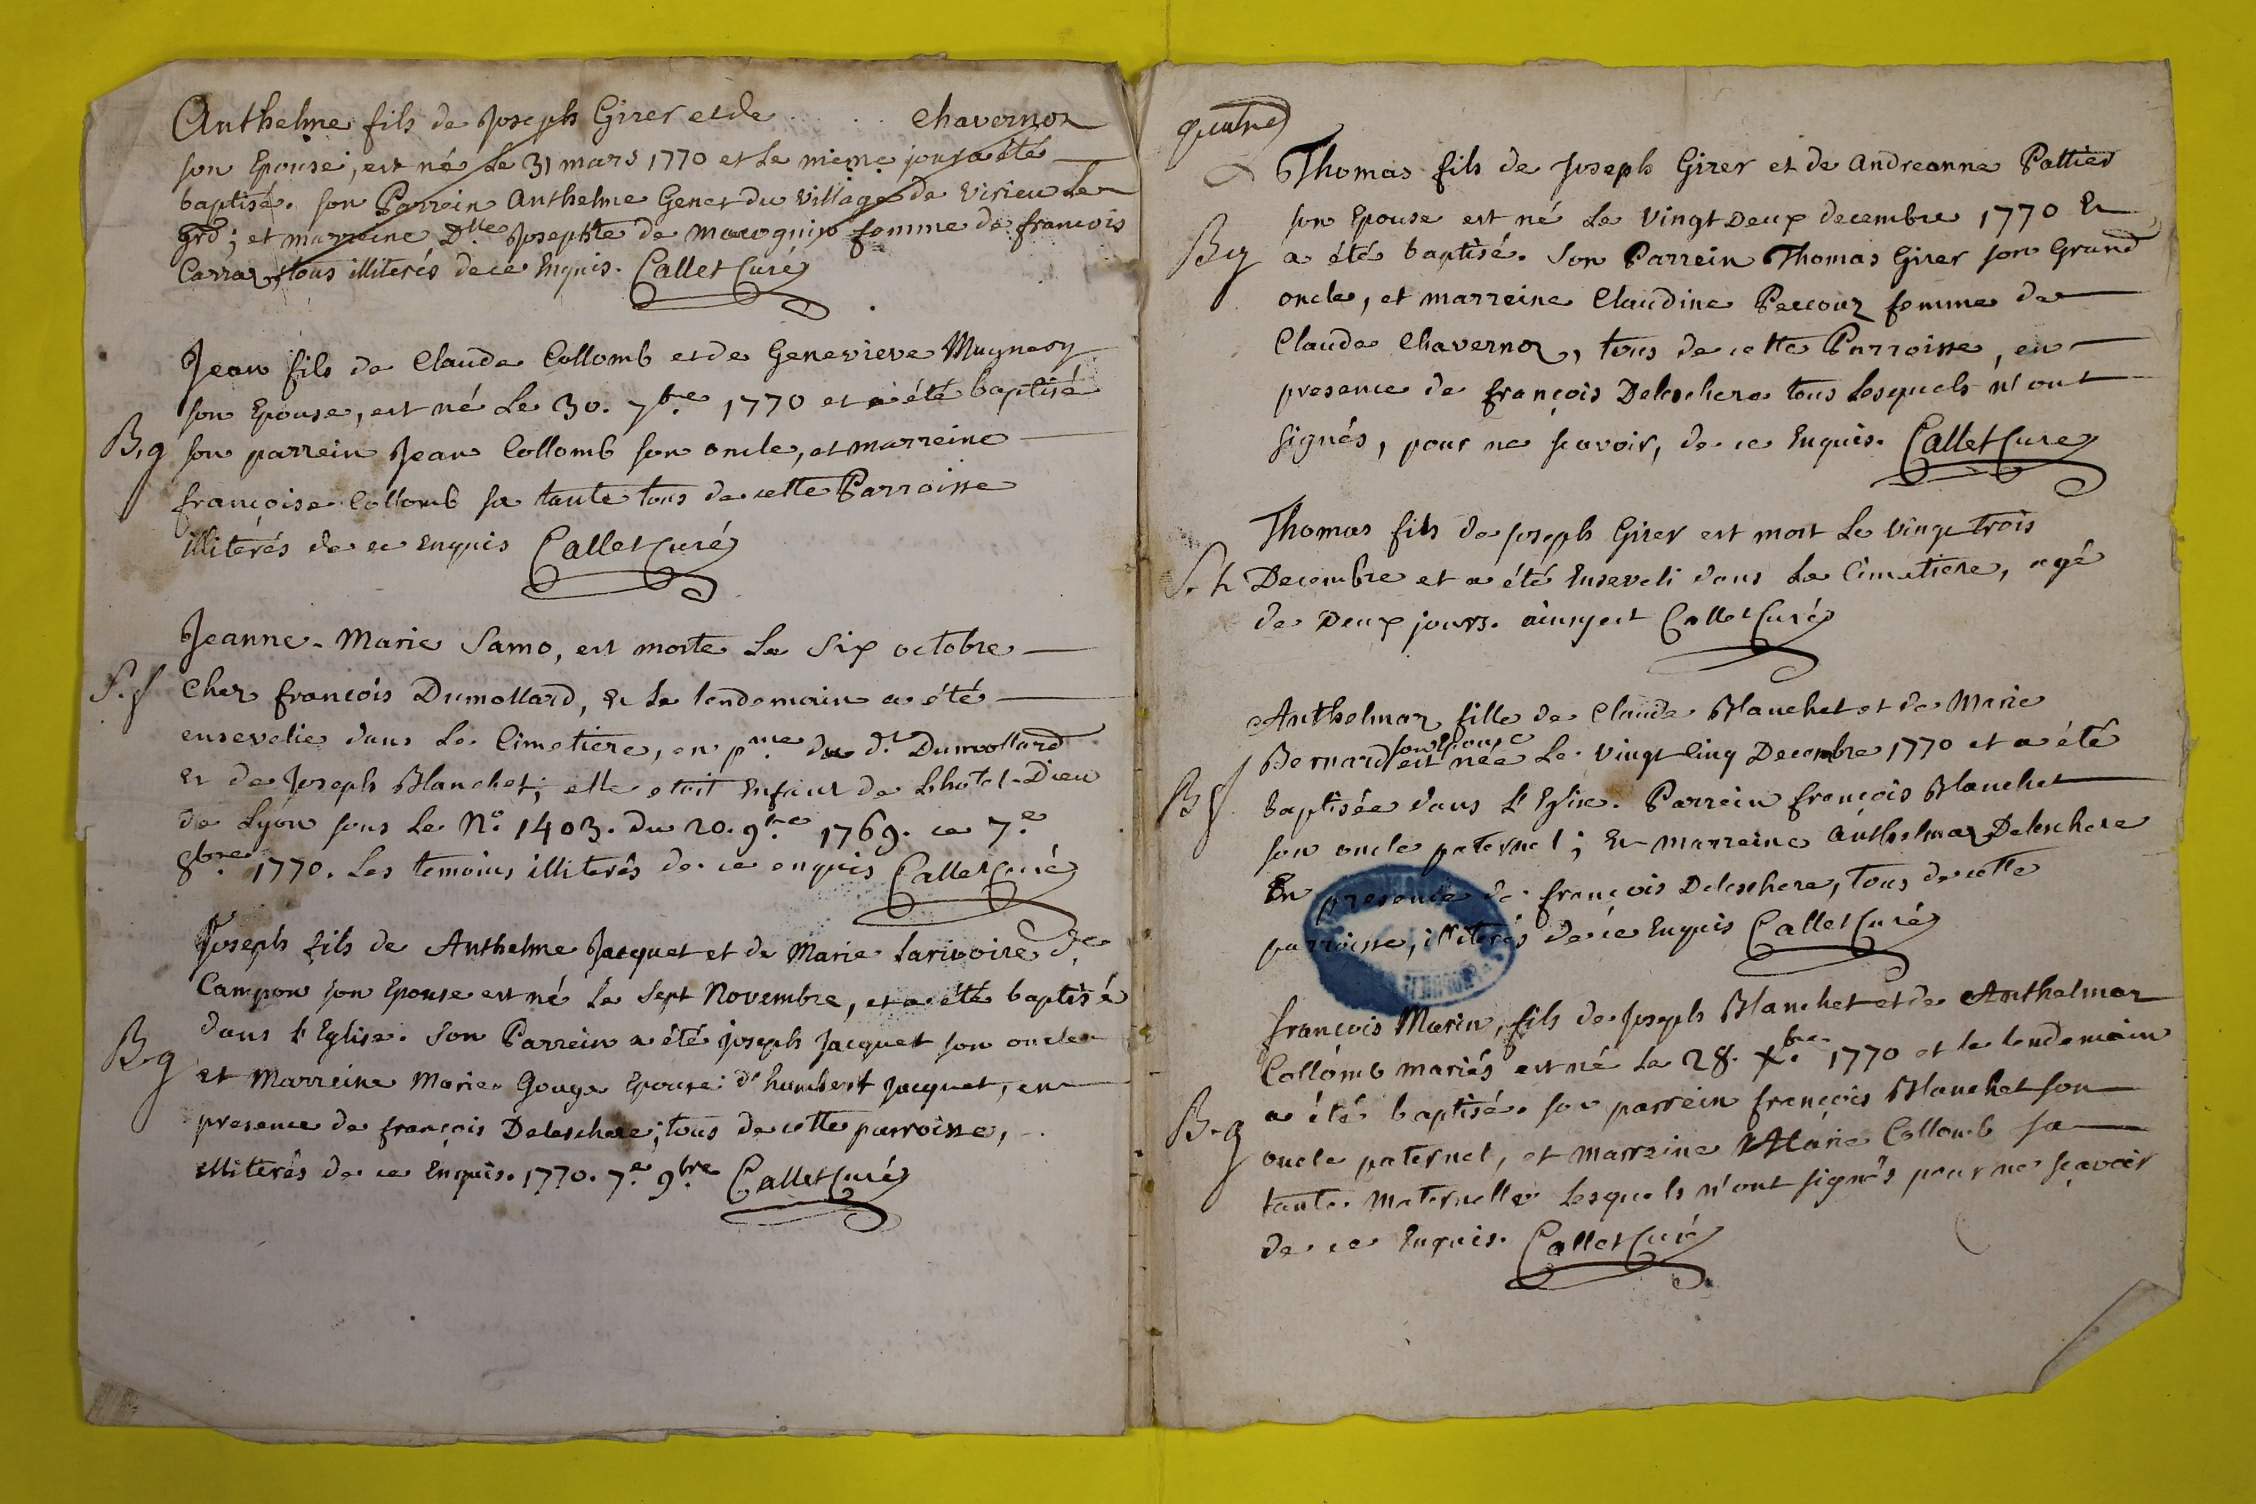 Anthelme fils de Joseph Girer et de . . . . Chavernoz
son Epouse, est né Le 31 mars 1770 et Le mémé jour a été
baptisé. son Parrein Anthelme Genet du Village de Virieu Le
grd; et marreine Dlle Josephte de Mauvguin femme de françois
Carraz, tous illiterés de ce Enquis. Callet Curé
Jean fils de Claude Collomb et de Genevieve Mugnery
son Epouse, est né Le 30. 7bre 1770 et a été baptisé
B. g son parrein Jean Collomb son oncle, et marreine
françoise Collomb sa tante tous de cette Parroisse
illiterés de ce Enquis Callet Curé
Jeanne-Marie Samo, est morte Le Six octobre
S. f Chez françois Dumollard, Et Le lendemain a été
ensevelie dans Le Cimetiere, en pnce du dt Dumollard
Et de Joseph Blanchet; elle etoit Enfant de Lhotel-Dieu
de Lyon sous Le No. 1403. Du 20. 9bre 1769. ce 7.e
8bre 1770. Les temoins illiterés de ce enquis Callet Curé
Joseph fils de Anthelme Jacquet et de Marie Larivoire d.e
Campon son Epouse est né Le Sept Novembre, et a été baptisé
dans L'Eglise. Son Parrein a été joseph Jacquet son oncle
B. g et Marreine Marie Gouge Epouse d'humbert Jacquet, en
presence de françois Deleschere; tous de cette parroisse,
illiterés de ce Enquis. 1770. 7.e 9bre Callet Curé
quatre
Thomas fils de Joseph Girer et de Andreanne Pattier
son Epouse est né Le Vingt Deux decembre 1770 Et
B g a été baptisé. Son Parrein Thomas Girer son Grand
oncle, et marreine Claudine Peccouz femme de
Claude Chavernoz, tous de cette Parroisse, en
presence de françois Deleschere tous Lesquels n'ont
signés, pour ne sçavoir, de ce Enquis. Callet Curé
Thomas fils de Joseph Girer est mort Le Vingt trois
S. h Decembre et a été Enseveli dans Le Cimetiere, agé
de Deux jours. ainsy est Callet Curé
Anthelmaz fille de Claude Blanchet et de Marie
Bernard son Epouse est née Le Vingt Cinq Decembre 1770 et a été
B f baptisée dans L'Eglise. Parrein françois Blanchet
son oncle paternel; Et marreine Anthelmaz Deleschere
En presence de françois Deleschere, tous de cette
parroisse, illiterés de ce Enquis Callet Curé
françois Marin, fils de Joseph Blanchet et de Anthelmaz
Collomb mariés est né Le 28. Xbre 1770 et le lendemain
B. g a été baptisé. son parrein françois Blanchet son
oncle paternel, et marreine Marie Collomb sa
tante Maternelle Lesquels n'ont signés pour ne sçavoir
de ce Enquis. Callet Curé